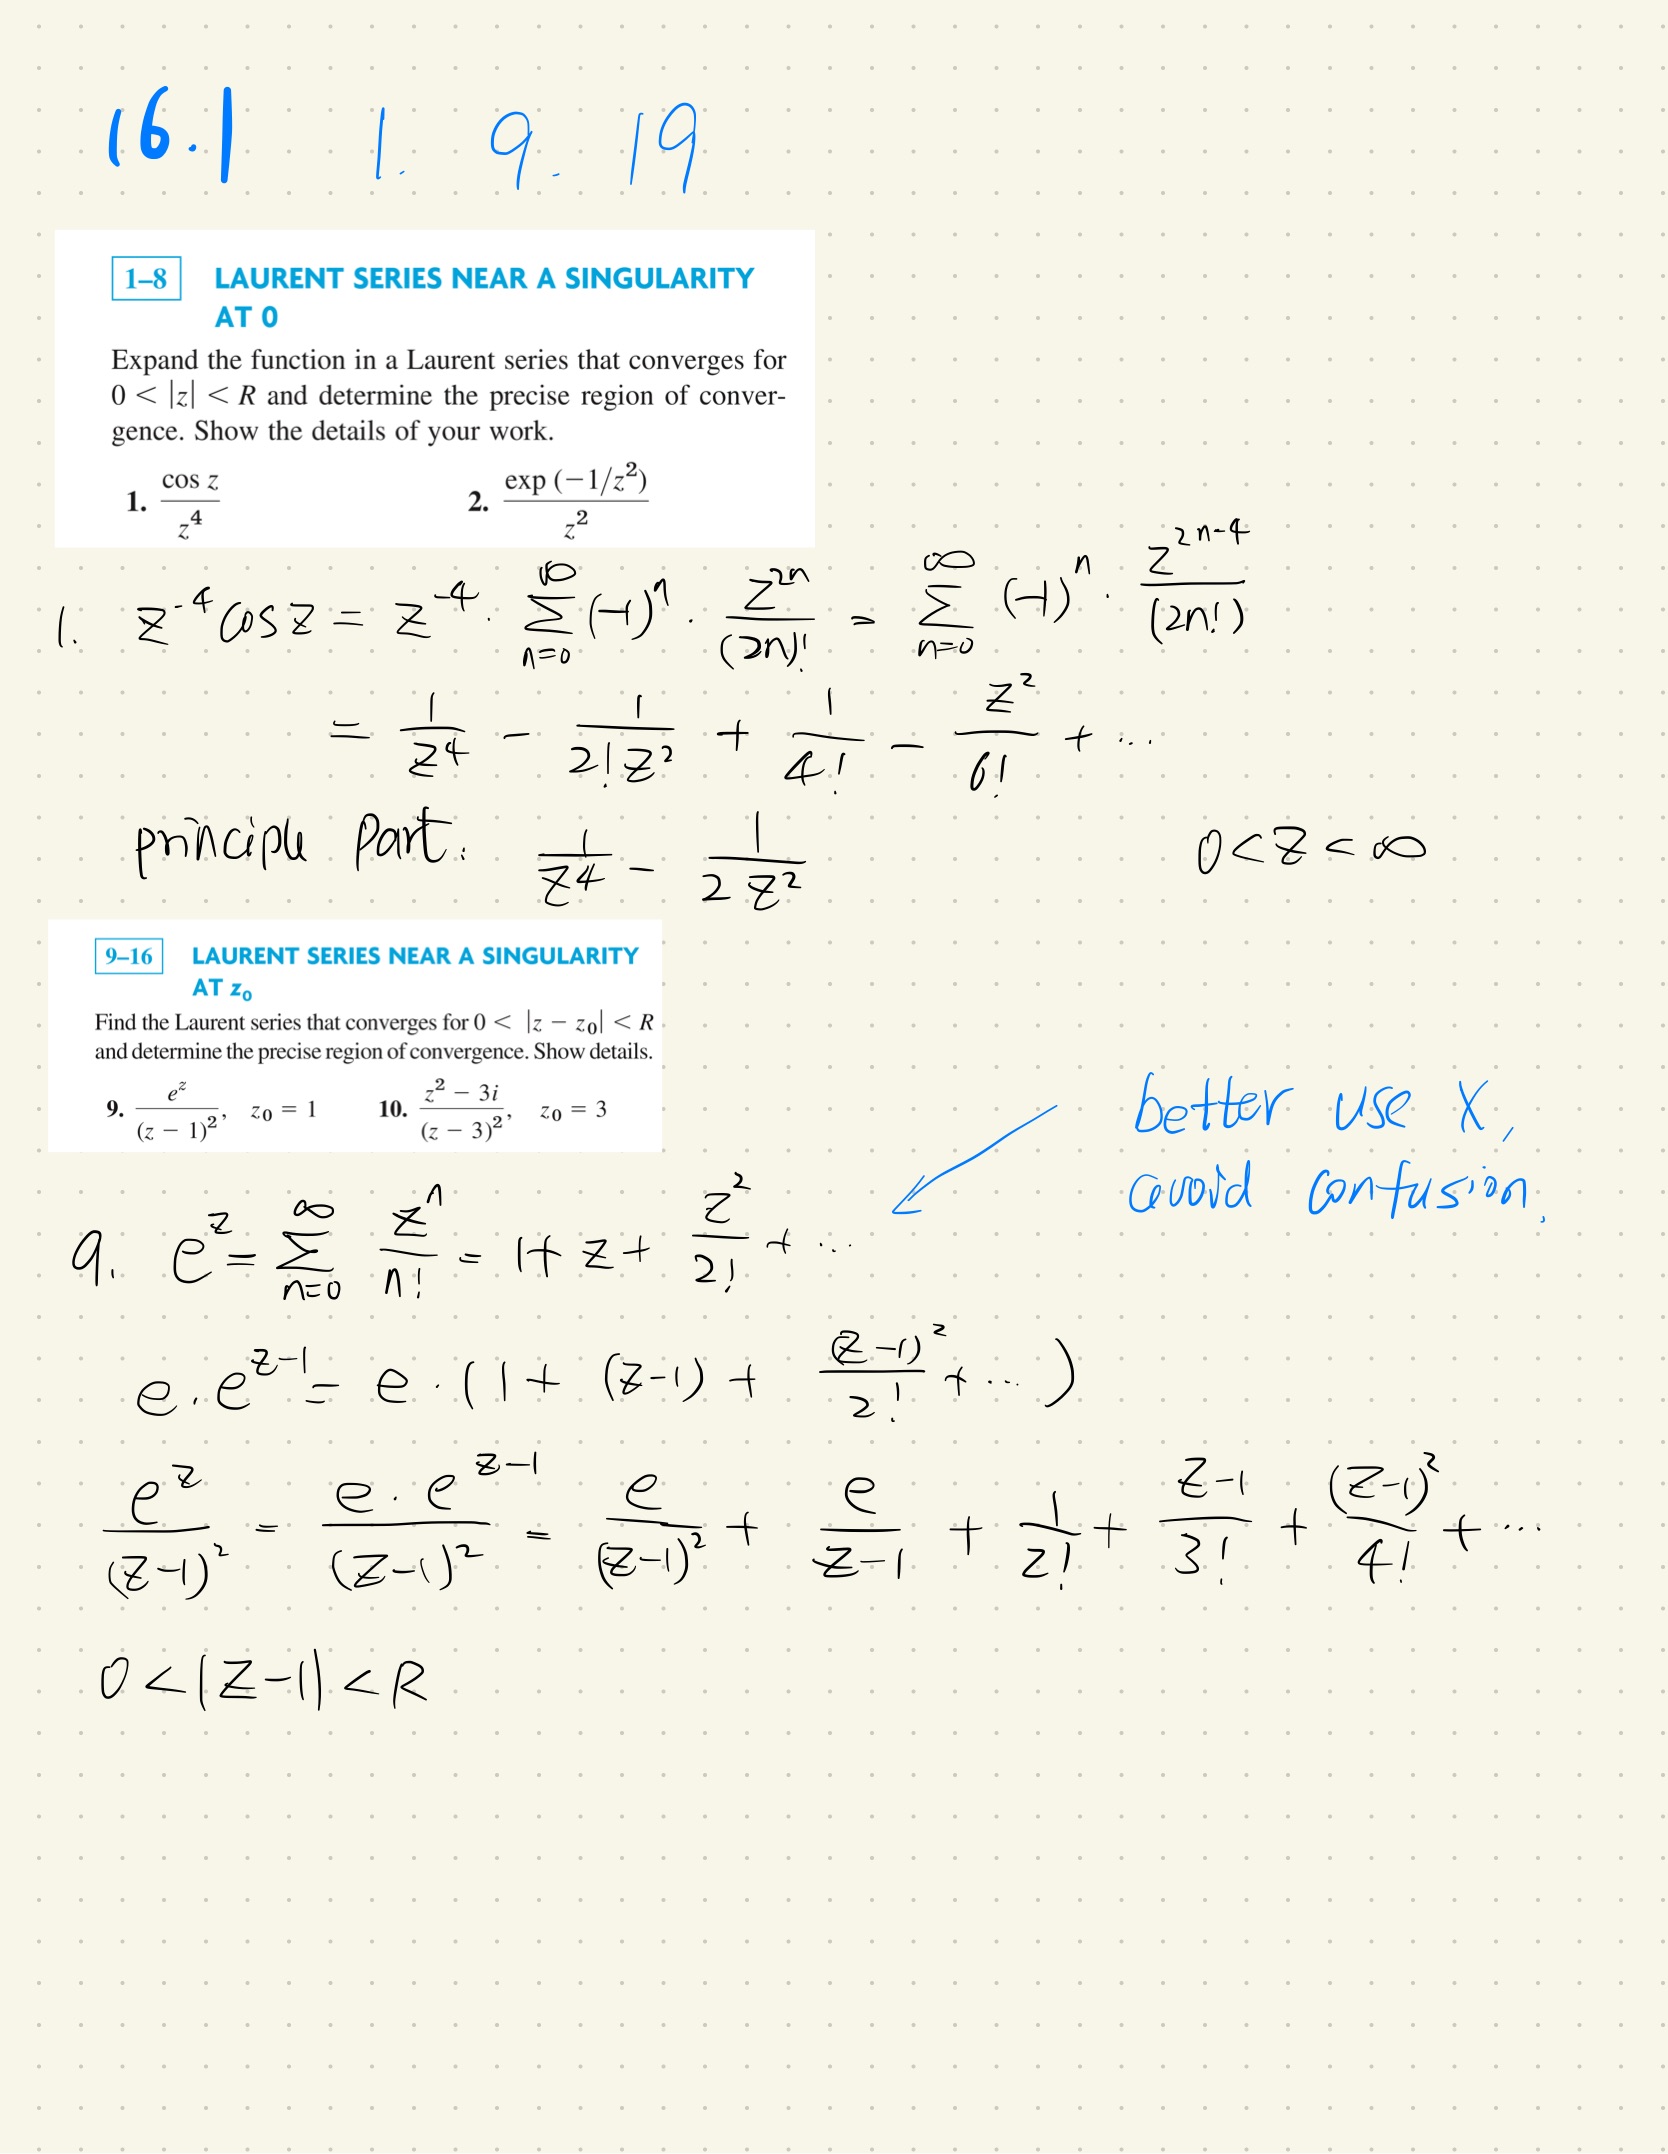 16.1 1. 9. 19
1–8 LAURENT SERIES NEAR A SINGULARITY
AT 0
Expand the function in a Laurent series that converges for
0 < |z| < R and determine the precise region of conver-
gence. Show the details of your work.
1. cos z / z^4 2. exp (−1/z^2) / z^2
1. z^-4 cos z = z^-4 · ∑_{n=0}^{∞} (-1)^n · z^2n / (2n)! = ∑_{n=0}^{∞} (-1)^n · z^{2n-4} / (2n!)
= 1/z^4 − 1/(2! z^2) + 1/4! − z^2/6! + ...
principle part: 1/z^4 − 1/(2 z^2) 0 < z < ∞
9–16 LAURENT SERIES NEAR A SINGULARITY
AT z_0
Find the Laurent series that converges for 0 < |z − z_0| < R
and determine the precise region of convergence. Show details.
9. e^z / (z − 1)^2, z_0 = 1 10. (z^2 − 3i) / (z − 3)^2, z_0 = 3
better use x,
avoid confusion.
9. e^z = ∑_{n=0}^{∞} z^n / n! = 1 + z + z^2/2! + ...
e · e^{z-1} = e · (1 + (z-1) + (z-1)^2/2! + ... )
e^z / (z-1)^2 = e · e^{z-1} / (z-1)^2 = e/(z-1)^2 + e/(z-1) + 1/2! + (z-1)/3! + (z-1)^2/4! + ...
0 < |z-1| < R